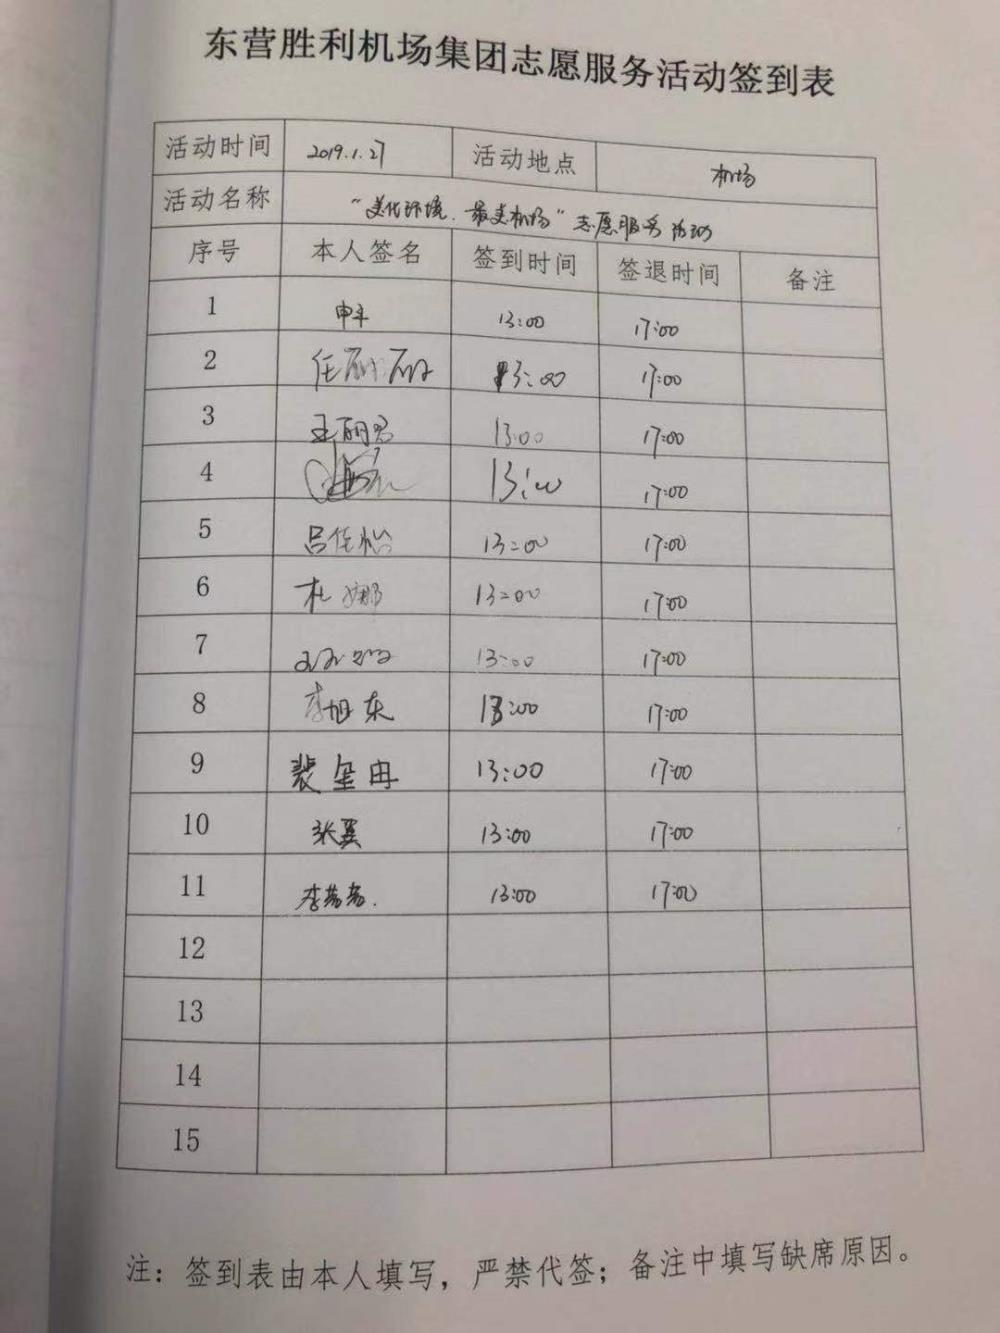 东营胜利机场集团志愿服务活动签到表
活动时间 2019.1.27 活动地点 机场
活动名称 “美化环境.最美机场”志愿服务活动
序号 本人签名 签到时间 签退时间 备注
1 申平 13:00 17:00
2 任丽丽 13:00 17:00
3 王丽君 13:00 17:00
4 13:00 17:00
5 吕佳怡 13:00 17:00
6 杜娜 13:00 17:00
7 13:00 17:00
8 李旭东 13:00 17:00
9 裴奎冉 13:00 17:00
10 张翼 13:00 17:00
11 李茜茜. 13:00 17:00
12
13
14
15
注：签到表由本人填写，严禁代签；备注中填写缺席原因。